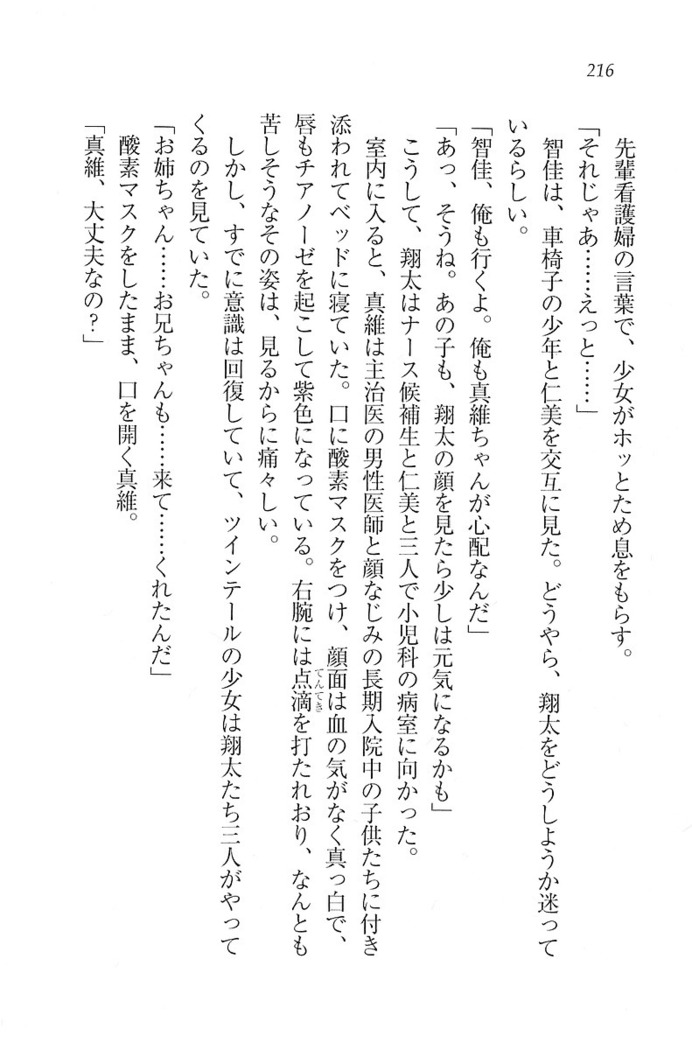 216
先輩看護婦の言葉で、少女がホッとため息をもらす。
「それじゃあ……えっと……」
智佳は、車椅子の少年と仁美を交互に見た。どうやら、翔太をどうしようか迷って
いるらしい。
「智佳、俺も行くよ。俺も真維ちゃんが心配なんだ」
「あっ、そうね。あの子も、翔太の顔を見たら少しは元気になるかも」
こうして、翔太はナース候補生と仁美と三人で小児科の病室に向かった。
室内に入ると、真維は主治医の男性医師と顔なじみの長期入院中の子供たちに付き
添われてベッドに寝ていた。口に酸素マスクをつけ、顔面は血の気がなく真っ白で、
唇もチアノーゼを起こして紫色になっている。右腕には点滴を打たれおり、なんとも
てんてき
苦しそうなその姿は、見るからに痛々しい。
しかし、すでに意識は回復していて、ツインテールの少女は翔太たち三人がやって
くるのを見ていた。
「お姉ちゃん……お兄ちゃんも……来て……くれたんだ」
酸素マスクをしたまま、口を開く真維。
「真維、大丈夫なの？」